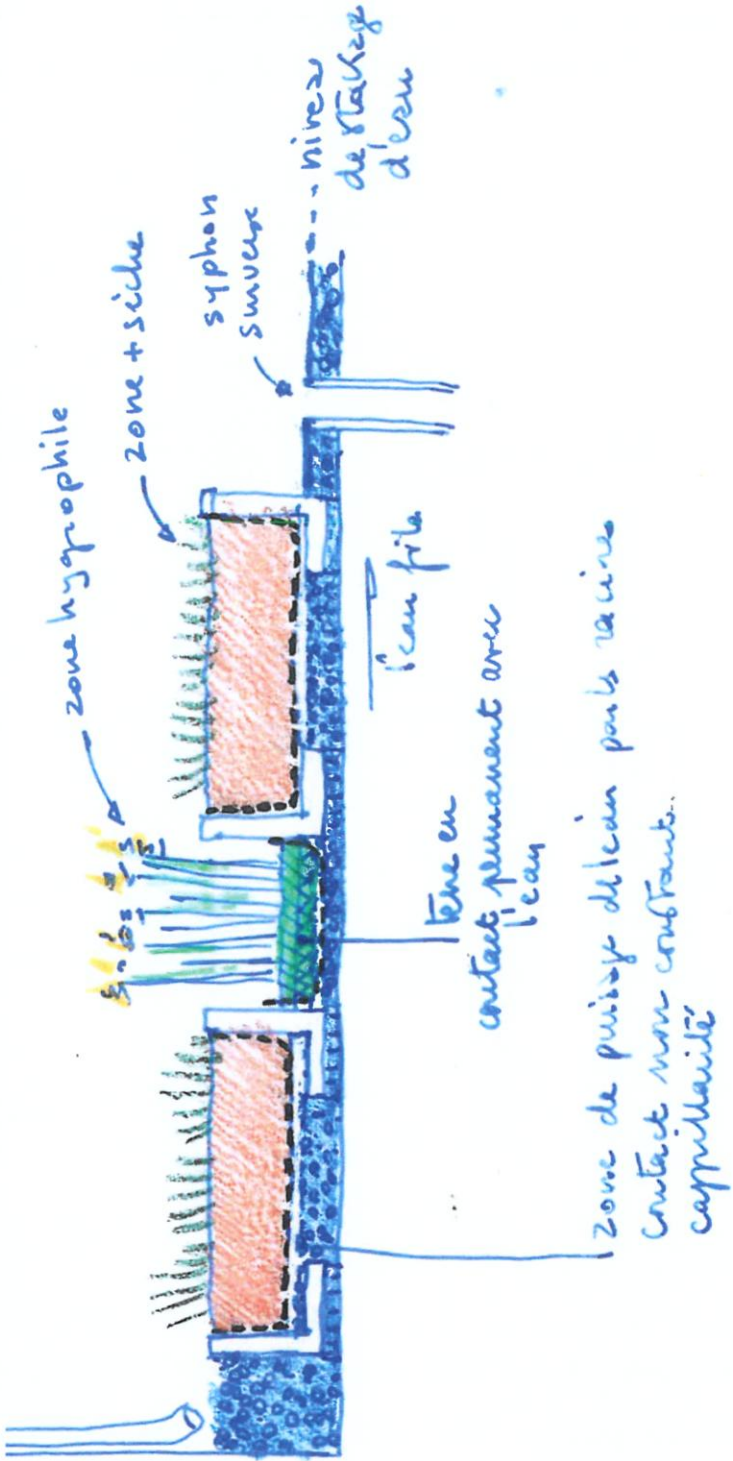 zone hygrophile
zone + sèche
syphon
niveau
de stockage
d'eau
l'eau file
terre en
contact permanent avec
l'eau
zone de puisage de l'eau par les racines
contact non constant..
cappillarité